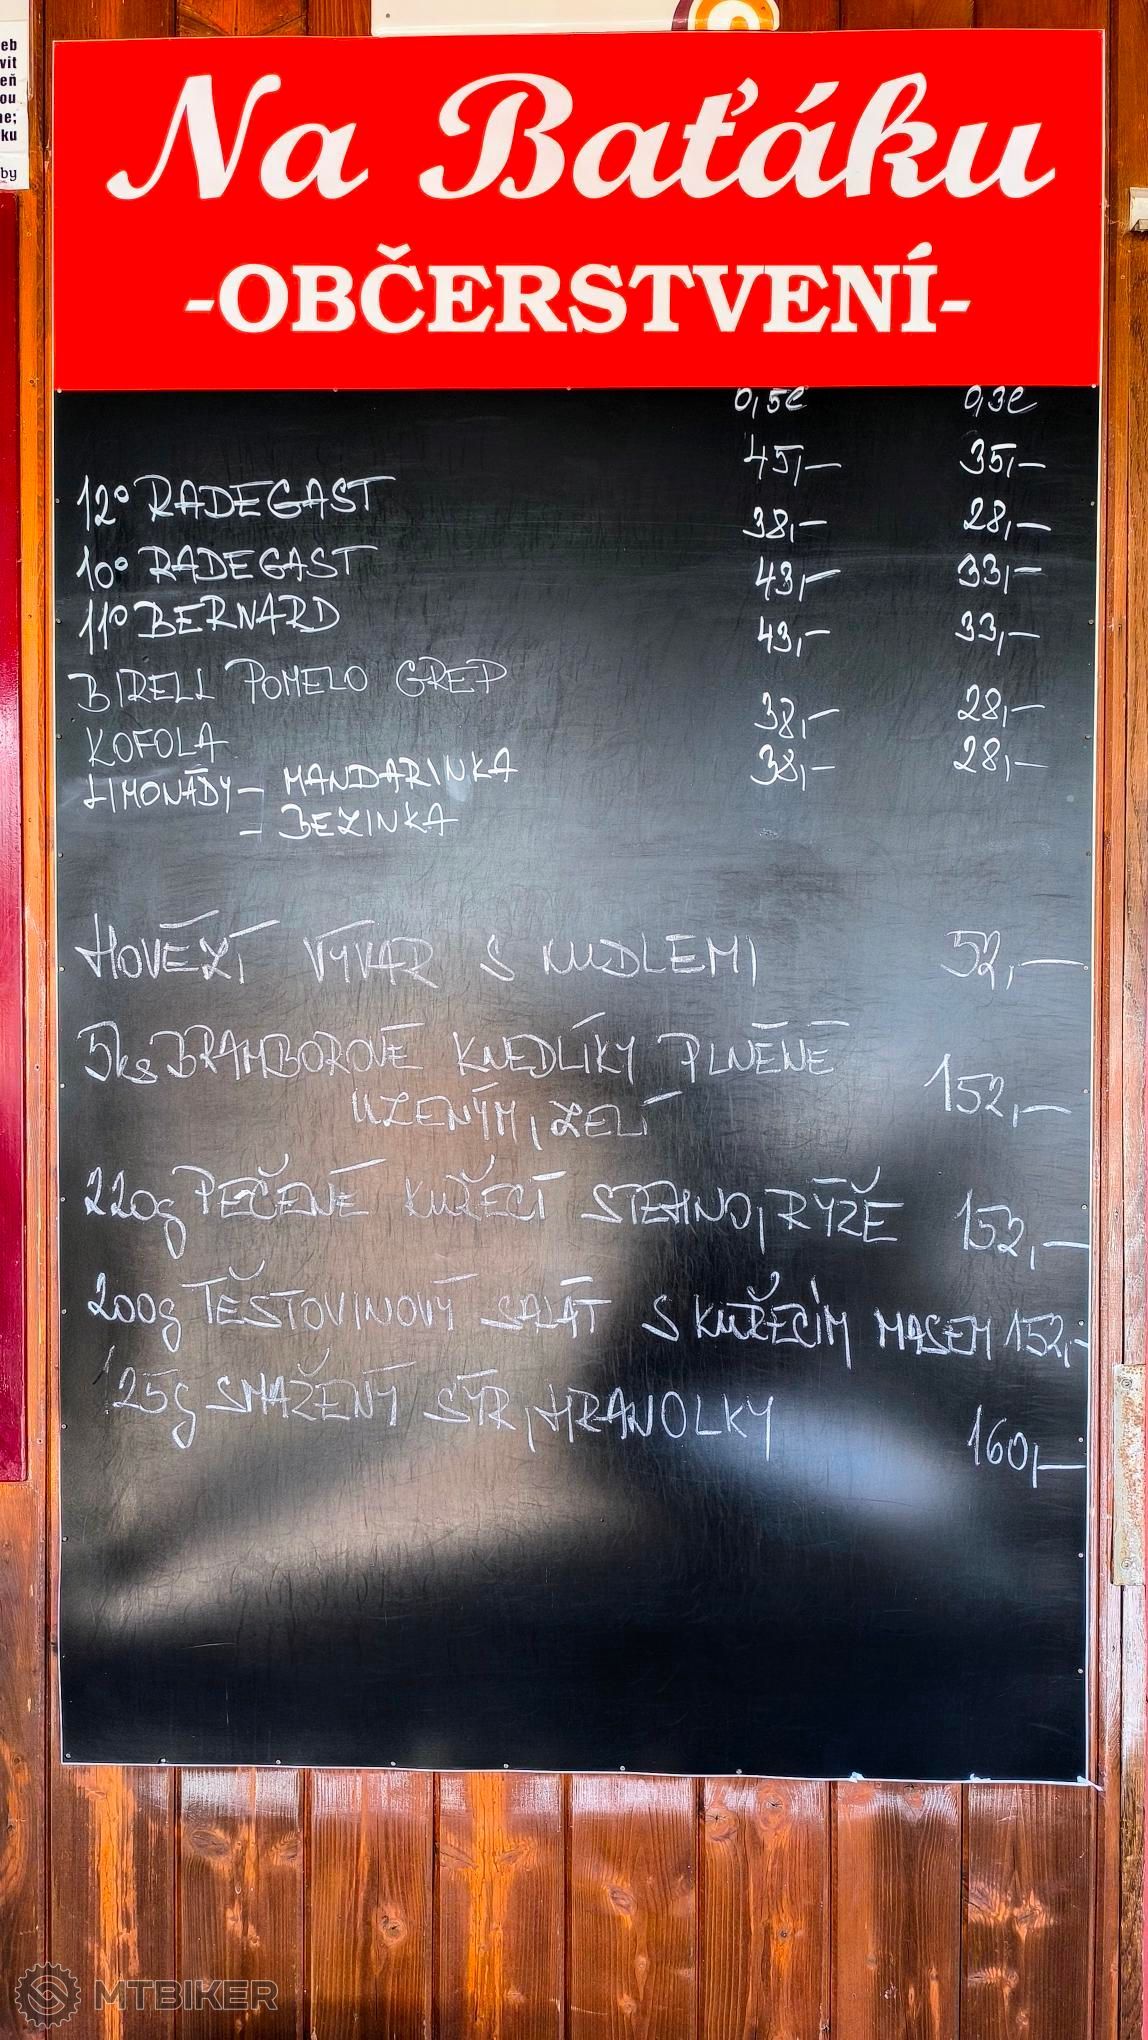 eb
vit
eň
ou
ne;
ku
by
Na Baťáku
-OBČERSTVENÍ-
0,5l 0,3l
12° RADEGAST 45,- 35,-
10° RADEGAST 38,- 28,-
11° BERNARD 43,- 33,-
BIRELL POMELO GREP 43,- 33,-
KOFOLA 38,- 28,-
LIMONÁDY - MANDARINKA 38,- 28,-
- BEZINKA
HOVĚZÍ VÝVAR S NUDLEMI 52,-
5ks BRAMBOROVÉ KNEDLÍKY PLNĚNÉ
UZENÝM, ZELÍ 152,-
220g PEČENÉ KUŘECÍ STEHNO, RÝŽE 152,-
200g TĚSTOVINOVÝ SALÁT S KUŘECÍM MASEM 152,-
125g SMAŽENÝ SÝR, HRANOLKY 160,-
MTBIKER